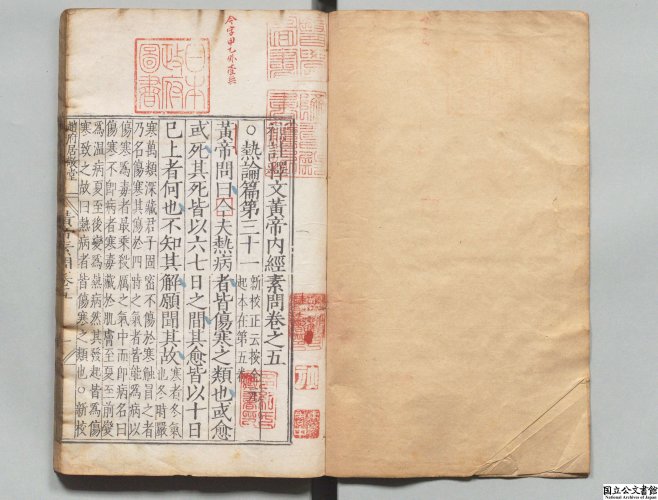 補註釋文黃帝內經素問卷之五
○熱論篇第三十一
新校正云按全元
起本在第五卷
黃帝問曰今夫熱病者皆傷寒之類也或愈
或死其死皆以六七日之間其愈皆以十日
已上者何也不知其解願聞其故
寒者冬氣
也冬時嚴
寒萬類深藏君子固密不傷於寒觸冒之者
乃名傷寒其傷於四時之氣皆能為病以
傷寒為毒者最乘殺厲之氣中而即病名曰
傷寒不即病者寒毒藏於肌膚至夏至前變
為溫病夏至後變為熱病然其發起皆為傷
寒致之故曰熱病者皆傷寒之類也○新校
趙府居敬堂
日本
政府
圖書
国立公文書館
National Archives of Japan